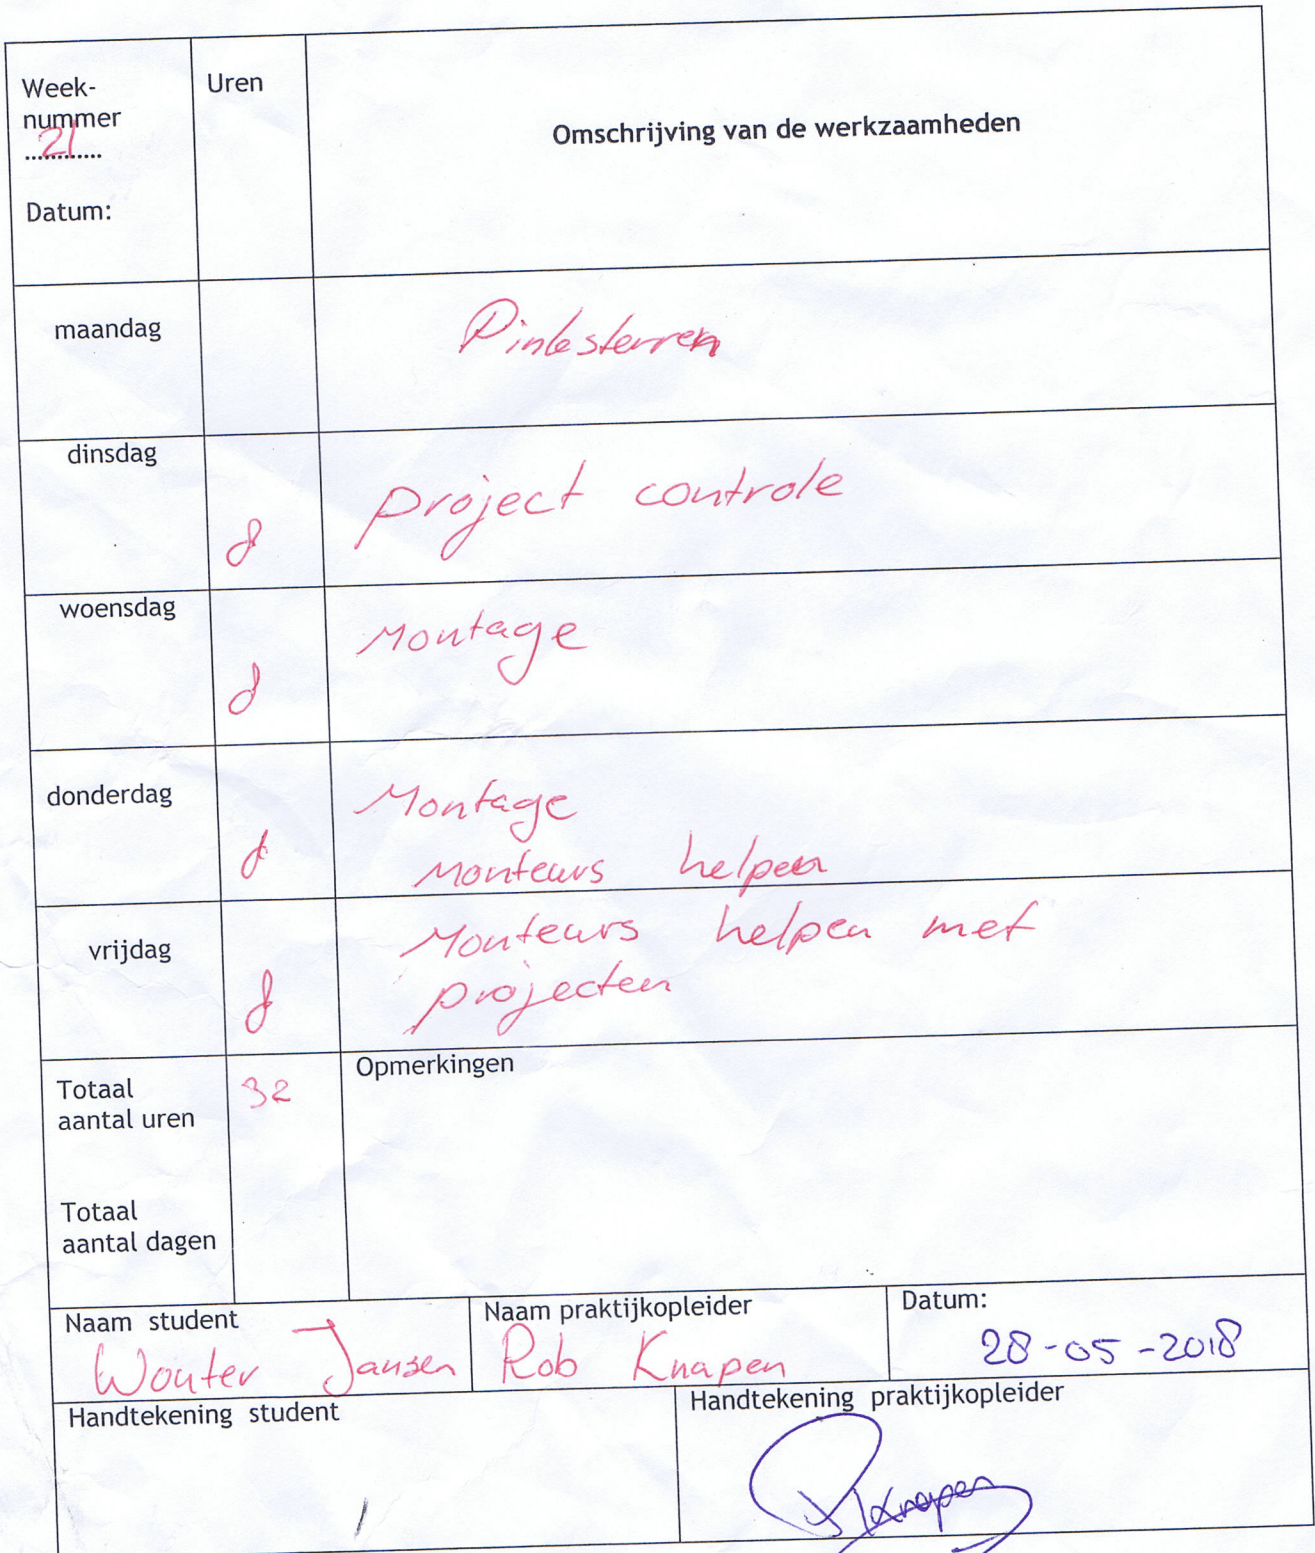 Week-
nummer
21
Datum:
Uren
Omschrijving van de werkzaamheden
maandag
Pinksterren
dinsdag
8
project controle
woensdag
8
Montage
donderdag
8
Montage
Monteurs helpen
vrijdag
8
Monteurs helpen met
projecten
Totaal
aantal uren
32
Opmerkingen
Totaal
aantal dagen
Naam student
Wouter Jansen
Naam praktijkopleider
Rob Knapen
Datum:
28-05-2018
Handtekening student
Handtekening praktijkopleider
RKnapen